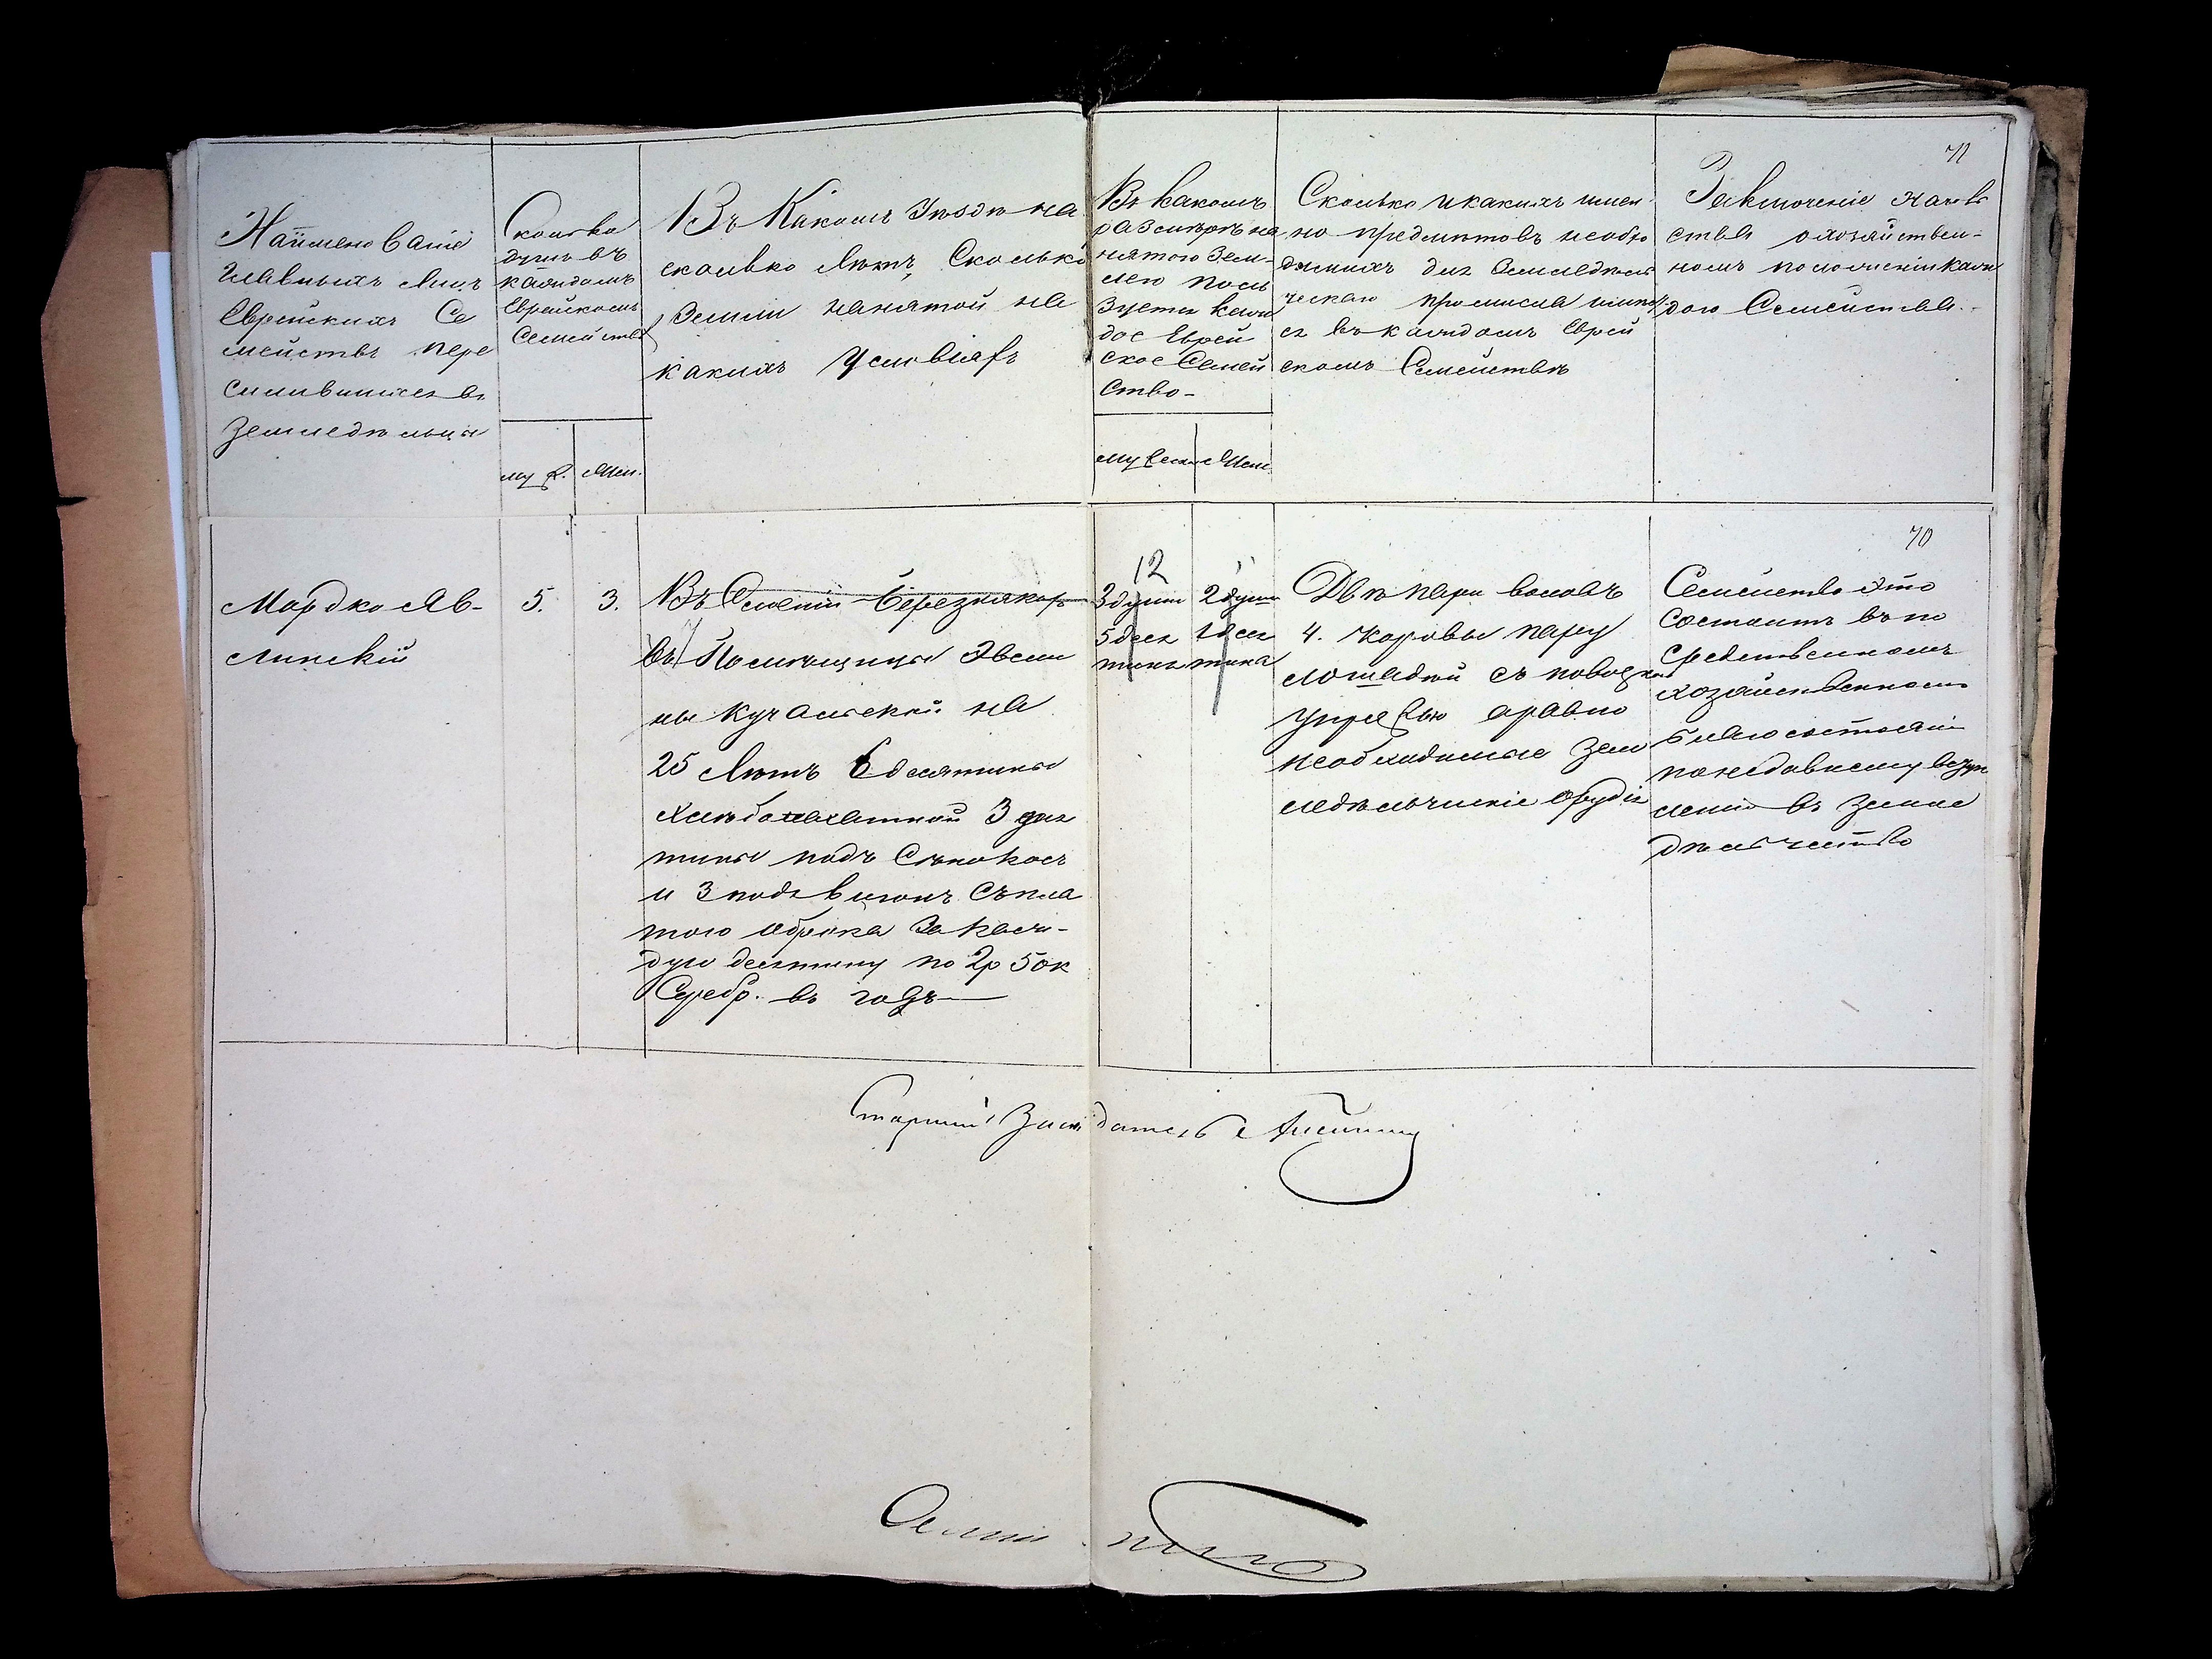 71
Наименованіе
главныхъ лицъ
Еврейскихъ Се
мействъ пере
силившихся въ
Земледѣльцы
Сколько
душъ въ
каждомъ
Еврейскомъ
Семействѣ
муж.
жен.
Въ Какомъ Уѣздѣ на
сколько лѣтъ, Сколько
Земли нанятой на
какихъ Условіяхъ
Въ какомъ
размѣрѣ на
нятою Зем-
лею поль
зуется каж
дое Еврей
ское Семей
ство-
мужеск
Жен.
Сколько и какихъ имен
но предметовъ необхо
димыхъ для Земледѣль
ческаго промысла имѣет
ся въ каждомъ Еврей
скомъ Семействѣ
Заключеніе
ства о хозяйствен-
номъ положеніи каж
даго Семейства.
70
Мордко Яв-
линскій
5.
3.
Въ Имѣніи Березнякахъ
въ Помѣщицы Эвели
ны Кучанской на
25 Лѣтъ 6 десятины
хлѣбопахатной 3 дся
тины подъ Сѣнокосъ
и 3 подъ выгонъ Съ пла
тою оброка За каж-
дую десятину по 2р 50к
Серебр. въ годъ
12
3 души
5 деся
тинъ
2 души
1 деся
тина
Двѣ пары воловъ
4. коровы пару
лошадей съ повозкой
упряжью и равно
необходимые Зем
ледѣльческіе орудія
Семейство Это
Состоитъ въ по
средственномъ
хозяйственномъ
благосостояніи
по недавнему
леніи въ Земле
дѣльчество
Старшій Засѣдатель